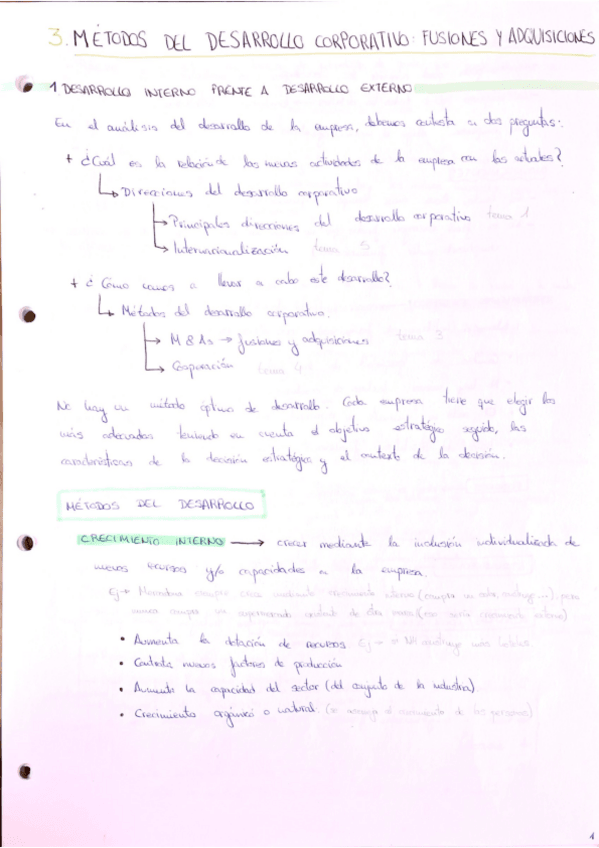 3. MÉTODOS DEL DESARROLLO CORPORATIVO: FUSIONES Y ADQUISICIONES
1 DESARROLLO INTERNO FRENTE A DESARROLLO EXTERNO
En el análisis del desarrollo de la empresa, debemos contestar a dos preguntas:
+ ¿Cuál es la relación de las nuevas actividades de la empresa con las actuales?
Direcciones del desarrollo corporativo
Principales direcciones del desarrollo corporativo tema 1
Internacionalización tema 5
+ ¿Cómo vamos a llevar a cabo este desarrollo?
Métodos del desarrollo corporativo.
M & As → fusiones y adquisiciones tema 3
Cooperación tema 4
No hay un método óptimo de desarrollo. Cada empresa tiene que elegir los
más adecuados teniendo en cuenta el objetivo estratégico seguido, las
características de la decisión estratégica y el contexto de la decisión.
MÉTODOS DEL DESARROLLO
CRECIMIENTO INTERNO → crecer mediante la inclusión individualizada de
nuevos recursos y/o capacidades a la empresa.
Ej → Mercadona crece mediante crecimiento interno (compra un solar, construye...), pero
nunca compra un supermercado de otra marca (eso sería crecimiento externo)
• Aumenta la dotación de recursos Ej →
• Contrata nuevos factores de producción
• Aumenta la capacidad del sector (del conjunto de la industria)
• Crecimiento orgánico o natural (se asemeja al crecimiento de las personas)
1